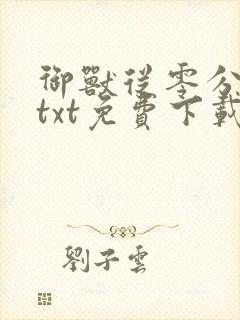 御獸從零分
txt免費下載
劉子雲